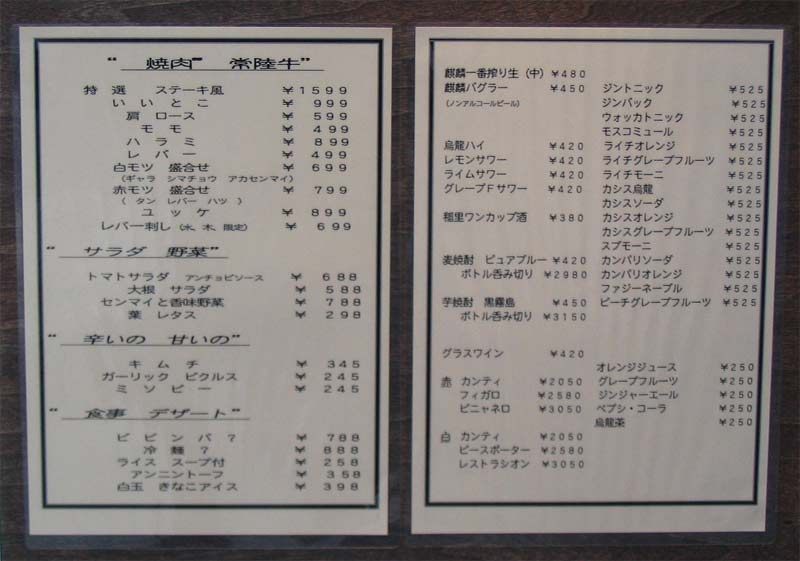 “ 焼肉” 常陸牛”
特 選 ステーキ風 ￥1599
いいとこ ￥ 999
肩 ロース ￥ 599
モ モ ￥ 499
ハ ラ ミ ￥ 899
レ バ ー ￥ 499
白モツ 盛合せ ￥ 699
（ギャラ シマチョウ アカセンマイ）
赤モツ 盛合せ ￥ 799
（ タン レバー ハツ ）
ユ ッ ケ ￥ 899
レバー刺し（水、木、限定） ￥ 699
“ サラダ 野菜”
トマトサラダ アンチョビソース ￥ 688
大根 サラダ ￥ 588
センマイと香味野菜 ￥ 788
葉 レタス ￥ 298
“ 辛いの 甘いの”
キ ム チ ￥ 345
ガーリック ピクルス ￥ 245
ミ ソ ピ ー ￥ 245
“ 食事 デザート”
ビ ビ ン バ ？ ￥ 788
冷 麺 ？ ￥ 888
ライス スープ付 ￥ 258
アンニントーフ ￥ 358
白玉 きなこアイス ￥ 398
麒麟一番搾り生（中） ￥480
麒麟バグラー ￥450
（ノンアルコールビール）
烏龍ハイ ￥420
レモンサワー ￥420
ライムサワー ￥420
グレープFサワー ￥420
稲里ワンカップ酒 ￥380
麦焼酎 ピュアブルー ￥420
ボトル呑み切り ￥2980
芋焼酎 黒霧島 ￥450
ボトル呑み切り ￥3150
グラスワイン ￥420
赤 カンティ ￥2050
フィガロ ￥2580
ピニャネロ ￥3050
白 カンティ ￥2050
ピースポーター ￥2580
レストラシオン ￥3050
ジントニック ￥525
ジンバック ￥525
ウォッカトニック ￥525
モスコミュール ￥525
ライチオレンジ ￥525
ライチグレープフルーツ ￥525
ライチモーニ ￥525
カシス烏龍 ￥525
カシスソーダ ￥525
カシスオレンジ ￥525
カシスグレープフルーツ ￥525
スプモーニ ￥525
カンパリソーダ ￥525
カンパリオレンジ ￥525
ファジーネーブル ￥525
ピーチグレープフルーツ ￥525
オレンジジュース ￥250
グレープフルーツ ￥250
ジンジャーエール ￥250
ペプシ・コーラ ￥250
烏龍茶 ￥250